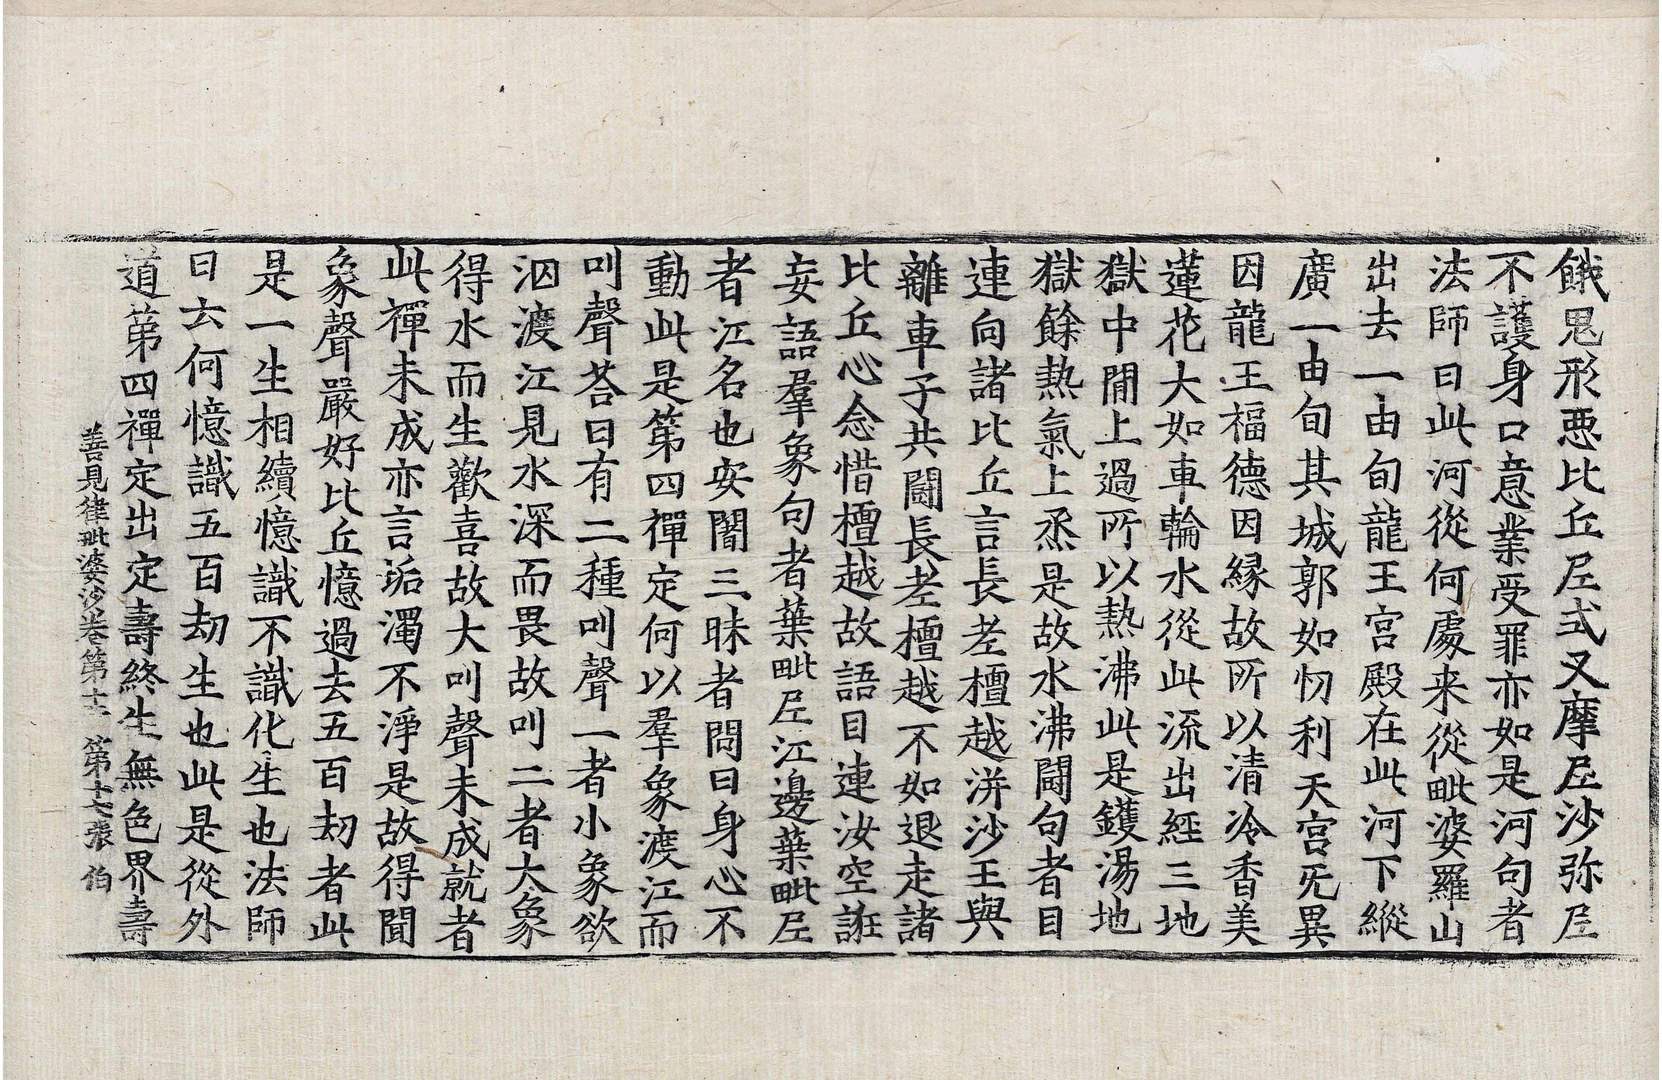 餓鬼形悪比丘𡰱式叉摩𡰱沙弥𡰱
不護身口意業受罪亦如是河句者
法師曰此河從何處来從毗婆羅山
出去一由旬龍王宮殿在此河下縱
廣一由旬其城郭如忉利天宮无異
因龍王福德因緣故所以清冷香美
蓮花大如車輪水從此流出經三地
獄中間上過所以熱沸此是鑊湯地
獄餘熱氣上烝是故水沸鬪句者目
連向諸比丘言長老檀越洴沙王與
離車子共鬪長老檀越不如退走諸
比丘心念惜檀越故語目連汝空誑
妄語羣象句者葉毗𡰱江邊葉毗𡰱
者江名也安闍三昧者問曰身心不
動此是第四禪定何以羣象渡江而
叫聲荅曰有二種叫聲一者小象欲
泅渡江見水深而畏故叫二者大象
得水而生歡喜故大叫聲未成就者
此禪未成亦言垢濁不淨是故得聞
象聲嚴好比丘憶過去五百劫者此
是一生相續憶識不識化生也法師
曰云何憶識五百劫生也此是從外
道第四禪定出定壽終生無色界壽
善見律毗婆沙卷第十二 第十六張 伯